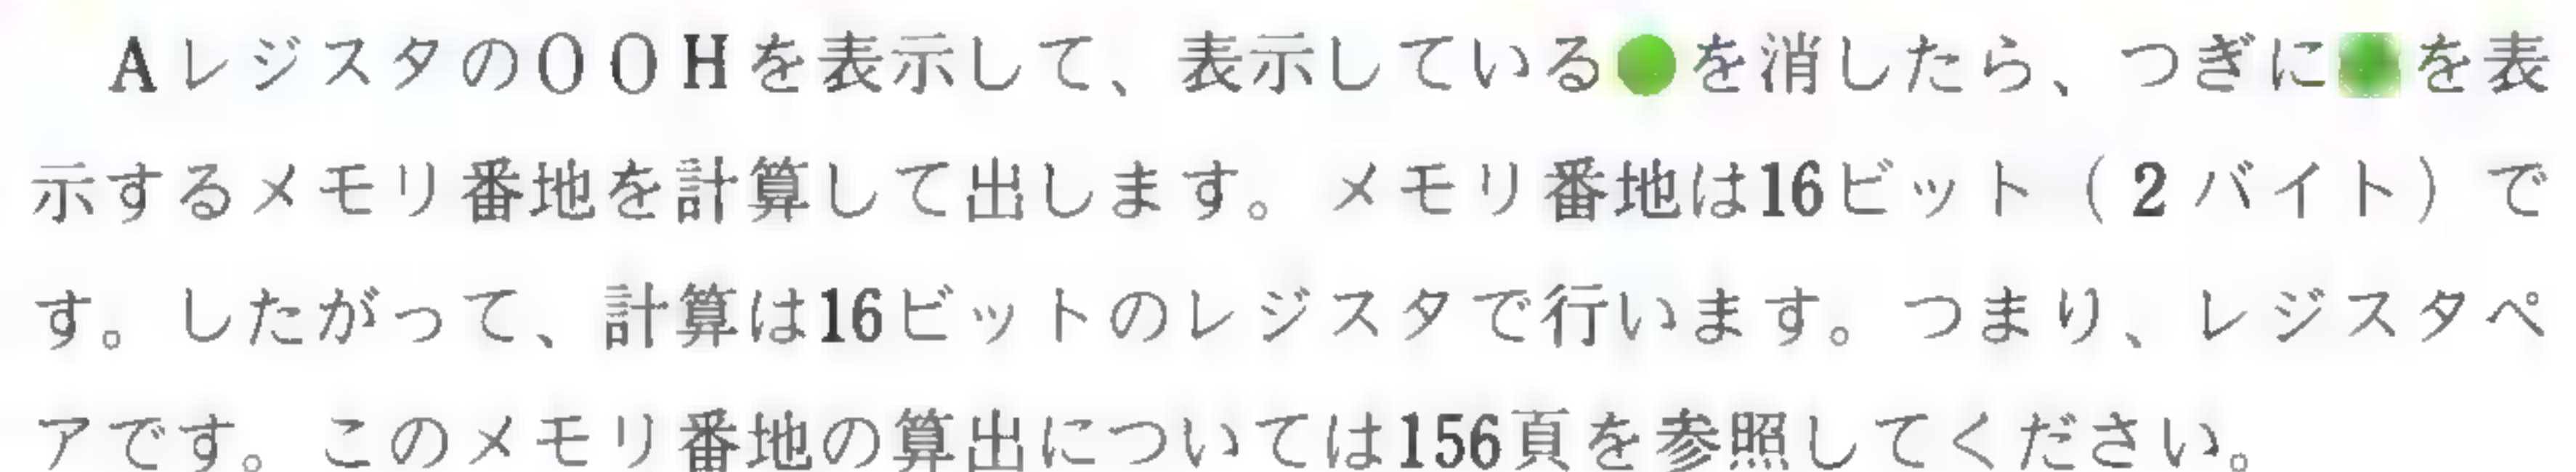 AレジスタのOOHを表示して、表示している●を消したら、つぎに■を表
示するメモリ番地を計算して出します。メモリ番地は16ビット（2バイト）で
す。したがって、計算は16ビットのレジスタで行います。つまり、レジスタペ
アです。このメモリ番地の算出については156頁を参照してください。